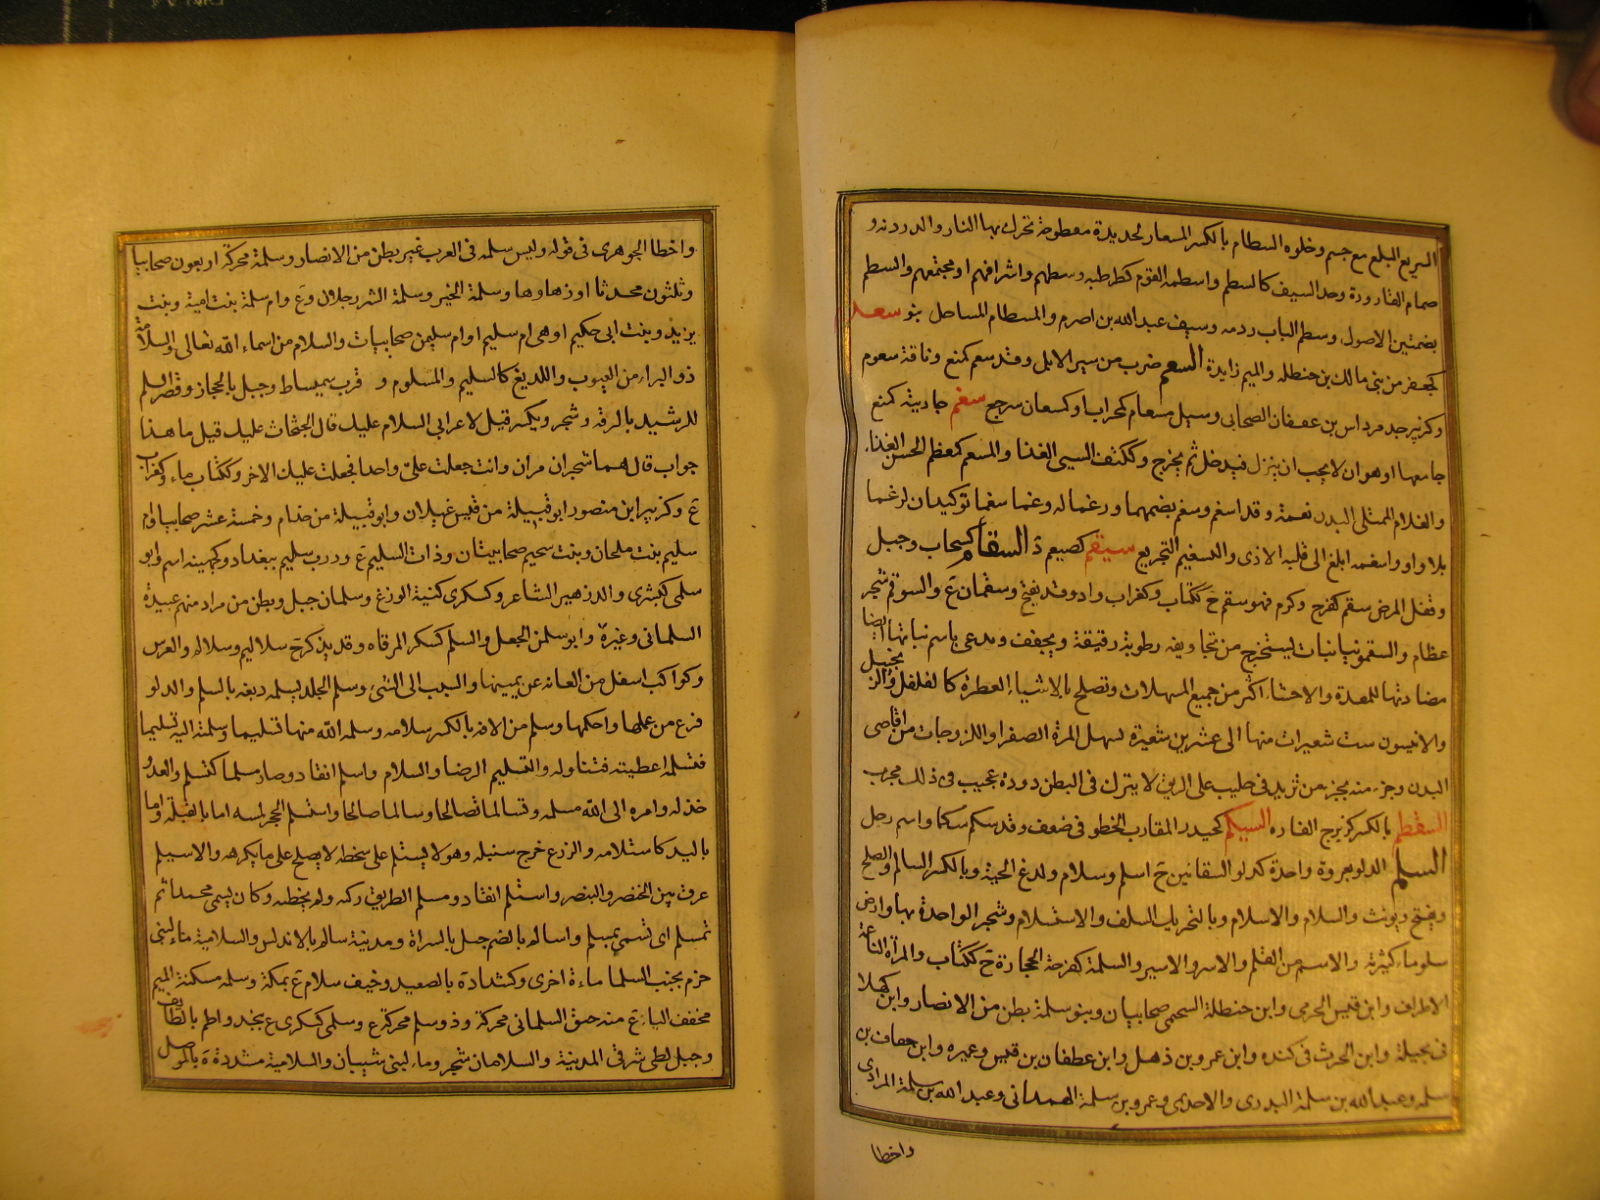 السريع البلع مع جسم وخلوه السطام بالكسر المسعار لحديدة مفطوحة تحرك بها النار والدردند و
صمام القارورة وحد السيف كالسطم واسطمة القوم كطرطبه وسطهم واشرافهم او مجتمعهم والسطم
بضمتين الاصول وسطم الباب ردمه وسيف عبد الله بن اصرم والمسطام المساحل بنو سعدم
كجعفر من بني مالك بن حنظله والميم زايدة السعم ضرب من سير الابل وقد سعم كمنع وناقة سعوم
وكزبير جد مرداس بن عقفان الصحابي وسيل مسعام كمحراب او كسعان سريع سغم جاريته كمنع
جامعها او هو ان لا يحب ان ينزل فيدخل ثم يخرج وككتف السيي الغذا والمسغم كمعظم الحسن الغذاء
والغلام الممتلي البدن نعمة وقد اسغم وسغم بضمهما ورغما له وغما سغما توكيدان لرغما
بلا واو واسغمه ابلغ الى قلبه الاذى والتسغيم التجريع سيقم كصيغم ة السقام كسحاب وجبل
وقفل المرض سقم كفرح وكرم فهو سقم ح ككتاب وكغراب واد وقد يفتح وسقمان ع والسوقم شجر
عظام والسقمونيا نبات يستخرج من تجاويفه رطوبة دقيقة ويجفف وتدعى باسم نباتها ايضا
مضادتها للمعدة والاحشاء اكثر من جميع المسهلات وتصلح بالاشياء العطرة كالفلفل والزنجبيل
والانيسون ست شعيرات منها الى عشرين شعيرة تسهل المرة الصفرا واللزوجات من اقاصي
البدن وجزء منه بجزء من تربد في حليب على الريق لا يترك في البطن دودة عجيب في ذلك مجرب
السقطم بالكسر كزبرج الفاره السيكم كحيدر المقارب الخطو في ضعف وقد سكم سكما واسم رجل
السلم الدلو بعروة واحدة كدلو السقائين ح اسلم وسلام ولدغ الحية وبالكسر السالم والصلح
ويفتح ويونث والسلام والاسلام وبالتحريك السلف والاستسلام وشجر الواحدة بهاء وارض
سلوماء كثيرته والاسم من التسلم والاسر والاسير والسلمة كفرحة الحجارة ح ككتاب والمراة الناعمة
الاطراف وابن قيس الجرمي وابن حنظلة السحيمي صحابيان وبنو سلمة بطن من الانصار وابن كهلا
في بجيلة وابن الحرث في كنده وابن عمرو بن ذهل وابن غطفان بن قيس وعميره وابن خفاف بن
سلمه وعبد الله بن سلمة البدري والاحدي وعمرو بن سلمة الهمداني وعبد الله بن سلمة المرادي
واخطا
واخطا الجوهري في قوله وليس سلمه في العرب غير بطن من الانصار وسلمة محركة اربعون صحابيا
وثلثون محدثا او زهاوها وسلمة الخير وسلمة الشر رجلان وع وام سلمة بنت امية وبنت
يزيد وبنت ابي حكيم او هي ام سليم او ام سليمن صحابيات والسلام من اسماء الله تعالى والسلامة
ذو البراء من العيوب واللديغ كالسليم والمسلوم و قرب سميساط وجبل بالحجاز وقصر السلم
للرشيد بالرقة وشجر ويكسر قيل لاعرابي السلام عليك قال الجثجاث عليك قيل ما هذا
جواب قال هما شجران مران وانت جعلت علي واحدا فجعلت عليك الاخر وككتاب ماء وكغراب
ع وكزبير ابن منصور ابو قبيلة من قيس غيلان وابو قبيلة من جذام وخمسة عشر صحابيا وام
سليم بنت ملحان وبنت سحيم صحابيتان وذات السليم ع ودرب سليم ببغداد وكجهينه اسم وابو
سلمى كبشرى والد زهير الشاعر وكسكرى كنية الوزغ وسلمان جبل وبطن من مراد منهم عبيدة
السلماني وغيره وابو سلمن الجعل والسلم كسكر المرقاه وقد يذكر ح سلاليم وسلالم والغرس
وكواكب اسفل من العانه عن يمينها والسبب الى الشئ وسلم الجلد يسلمه دبغه بالسلم والدلو
فرغ من عملها واحكمها وسلم من الافه بالكسر سلامه وسلمه الله منها تسليما وسلمته اليه تسليما
فتسلمه اعطيته فتناوله والتسليم الرضا والسلام واسلم انقاد وصار مسلما كتسلم والعدو
خذله وامره الى الله سلمه وتسالما تصالحا وسالما صالحا واستلم الحجر لمسه اما بالقبلة واما
باليد كاستلامه والزرع خرج سنبله وهو لا يستلم على سخطه لا يصلح على ما يكرهه والاسيلم
عرق بين الخنصر والبنصر واستلم انقاد ومسلم الطريق ركبه ولم يخطئه وكان يسمى محمدا ثم
تمسلم اي تسمى بمسلم واسالم بالضم جبل بالسراة ومدينة سالم بالاندلس والسلامية ماء لبني
حزم بجنب السلما ماءة اخرى وكشداد ة بالصعيد وخيف سلام ع بمكة وسلمه مسكنة الميم
مخفف الياء ع منه حمق السلماني محركة وذو سلم محركة ع وسلمى كسكرى ع بنجد واطم بالطايف
وجبل لطي شرقي المدينة والسلامان شجر وماء لبني شيبان والسلامية مشددة ة بالموصل